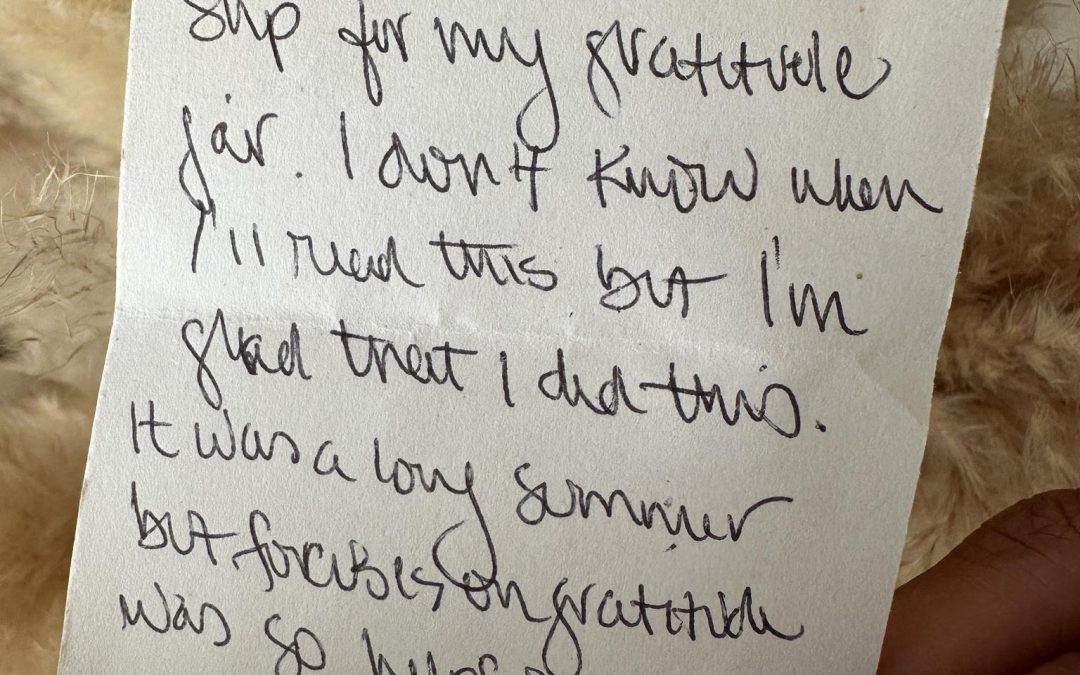 slip for my gratitude
jar. I don't know when
I'll read this but I'm
glad that I did this.
It was a long summer
but focuses on gratitude
was so